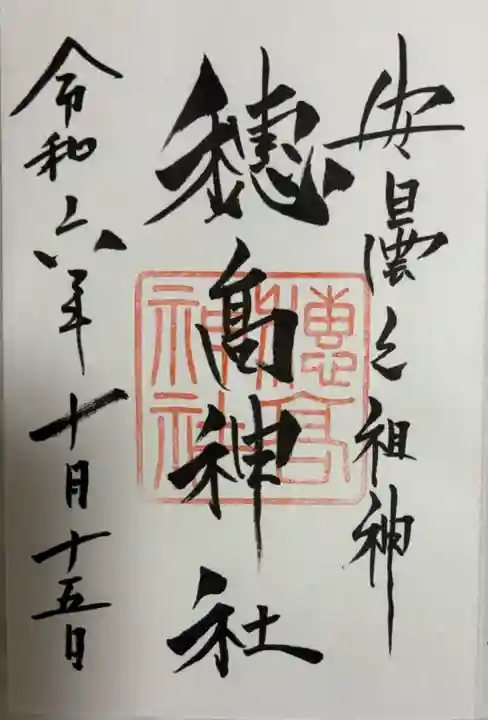 安曇之祖神
穂髙神社
穂高神社
令和六年十月十五日